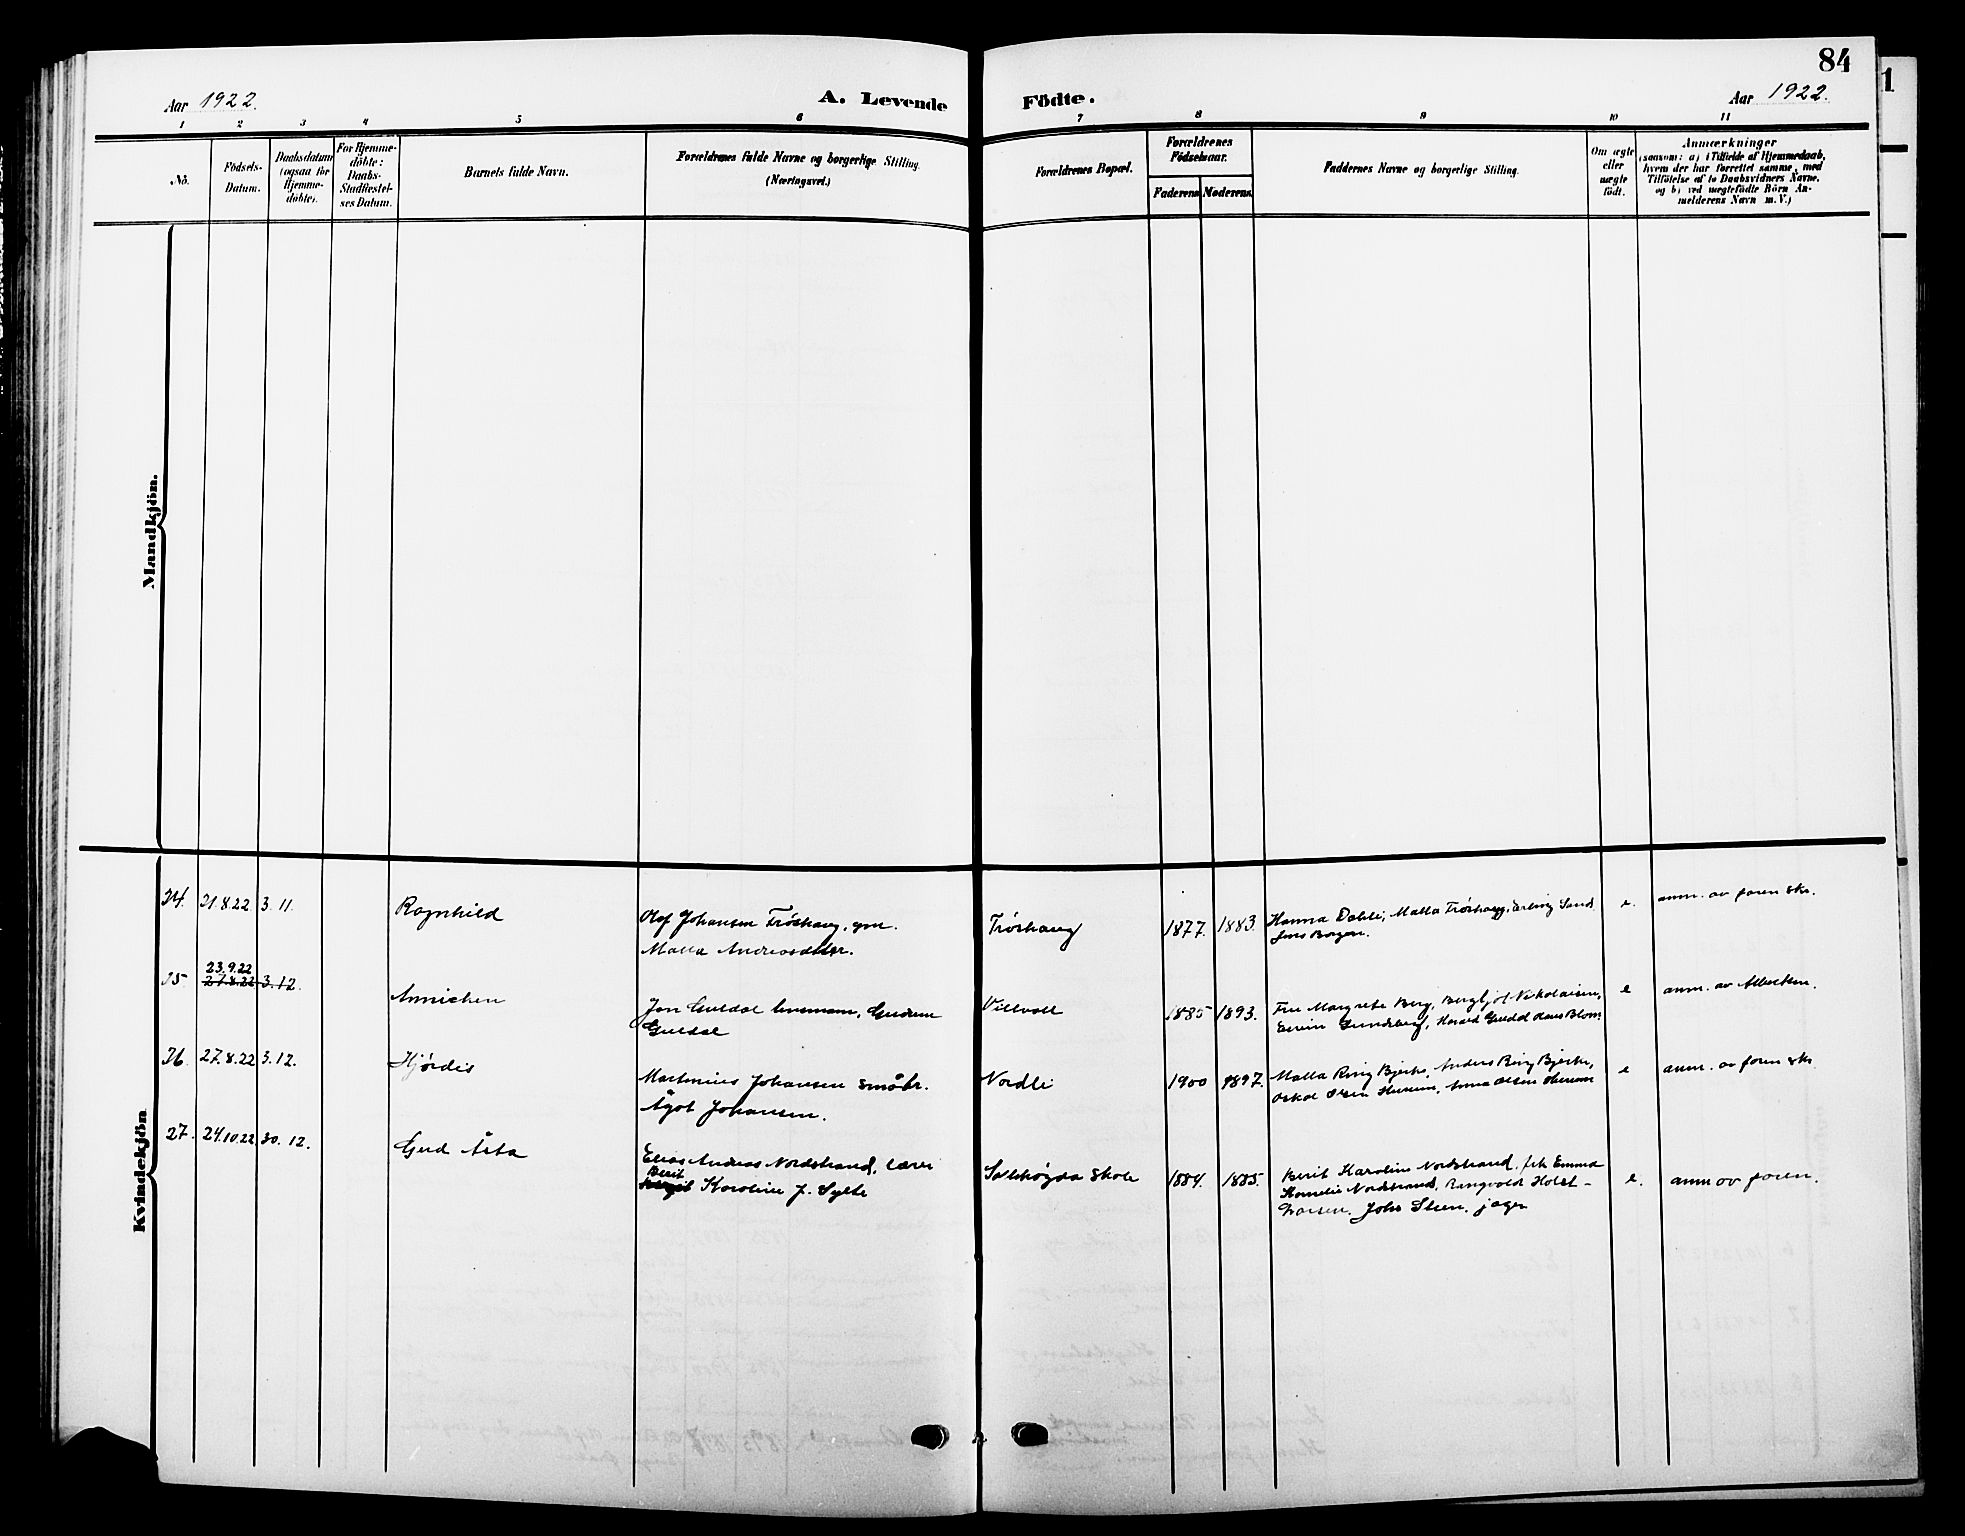 84
1
Aar 1922.
A. Levende
Födte.
Aar 1922.
1 2 3 4 5 6 7 8 9 10 11
No.
Födsels-
Datum.
Daabsdatum
(ogsaa for
Hjemme-
döbte).
For Hjemme-
döbte:
Daabs-
Stadfæstel-
ses Datum.
Barnets fulde Navn.
Forældrenes fulde Navne og borgerlige Stilling.
(Næringsvei.)
Forældrenes Bopæl.
Forældrenes
Födselsaar.
Faderens
Moderens.
Faddernes Navne og borgerlige Stilling.
Om ægte
eller
uægte
födt.
Anmærkninger
(saasom: a) i Tilfælde af Hjemmedaab,
hvem der har forrettet samme, med
Tilföielse af to Daabsvidners Navne,
og b) ved uægtefödte Börn An-
melderens Navn m. V.)
Mandkjön.
Kvindekjön
24. 21.8.22 3. 11. Ragnhild
Olof Johansen Tröshaug, gm.
Malla Andreasdatter.
Tröshaug 1877. 1883.
Hanna Dahle; Malla Tröshaug, Erling Sand
Jens Borgen.
e. anm. av foren sks.
25 23.9.22
27.8.22 3.12. Annichen
Jon Guldal lensmann, Gudrun
Guldal
Villvoll 1885 1893.
Fru Margrete Berg, Bergljot Nikolaisen,
Einin Gundberg, Harald Guldal Hans Blom
e anm. av Albertsen.
26 27.8.22 3.12. Hjørdis
Martinius Johansen småbr.
Ågot Johansen.
Nordli 1900 1897.
Malla Ring Bjerke, Anders Ring Bjerke,
Oskar Olsen Husum, Anna Olsen Husum
e anm. av foren sks
27. 24.10.22 30. 12. Gerd Åsta
Elias Andreas Nordstrand, lærer
Berit
Karoline J. Sylte
Solehøgda Skole 1884. 1885.
Berit Karoline Nordstrand, frk Emma
Kornelie Nordstrand, Rangvald Holst-
Larsen, Johs Olsen, jæger
e. anm av foren.